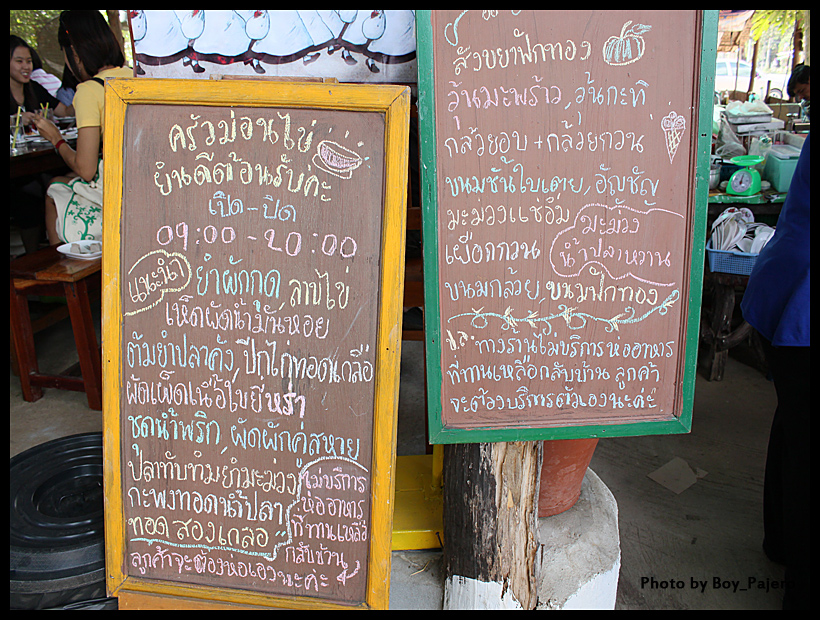 ครัวม่อนไข่
ยินดีต้อนรับค่ะ
เปิด-ปิด
09:00 - 20:00
แนะนำ ยำผักกูด, ลาบไข่
เห็ดผัดน้ำมันหอย
ต้มยำปลาคัง, ปีกไก่ทอดเกลือ
ผัดเผ็ดเนื้อใบยี่หร่า
ชุดน้ำพริก, ผัดผักคู่สหาย
ปลาทับทิมยำมะม่วง
กะพงทอดน้ำปลา
ทอดสองเกลือ
ไม่บริการ
ห่ออาหาร
ที่ทานเหลือ
กลับบ้าน
ลูกค้าจะต้องห่อเองนะค่ะ
สังขยาฟักทอง
วุ้นมะพร้าว, วุ้นกะทิ
กล้วยอบ + กล้วยกวน
ขนมชั้นใบเตย, อัญชัญ
มะม่วงแช่อิ่ม
เผือกกวน
มะม่วง
น้ำปลาหวาน
ขนมกล้วย, ขนมฟักทอง
ป.ล. ทางร้านไม่บริการห่ออาหาร
ที่ทานเหลือกลับบ้าน ลูกค้า
จะต้องบริการตัวเองนะค่ะ
Photo by Boy_Pajero